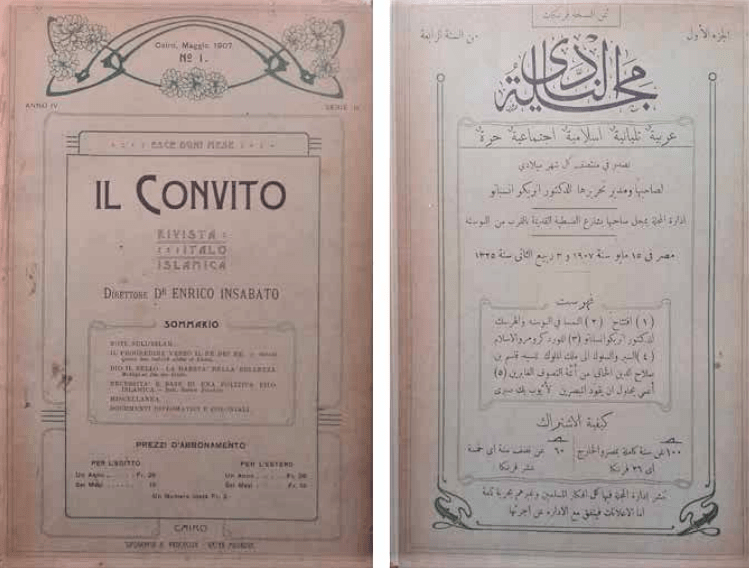 Cairo, Maggio 1907
Nº 1.
ANNO IV
SERIE
ESCE OGNI MESE
IL CONVITO
RIVISTA
ITALO
ISLAMICA
DIRETTORE Dr ENRICO INSABATO
SOMMARIO
NOTE SULL'ISLAM.
IL PROGREDIRE VERSO IL RE DEI RE.
DIO IL BELLO - LA BEATA NELLA BELLEZZA
NECESSITÀ E BASI DI UNA POLITICA FILO-
ISLAMICA
MISCELLANEA
DOCUMENTI DIPLOMATICI E COLONIALI.
PREZZI D'ABBONAMENTO
PER L'EGITTO
PER L'ESTERO
Un Anno Fr. 26
Un Anno Fr. 26
Sei Mesi 15
Sei Mesi Fr. 15
Un Numero Fr. 3
CAIRO
ثمن النسخة فرنكات
الجزء الأول
من السنة الرابعة
مجلة النادي
عربية تليانية اسلامية اجتماعية حرة
تصدر في منتصف كل شهر ميلادي
لصاحبها ومدير تحريرها الدكتور انريكو انسباتو
ادارة المجلة بمحل صاحبها بشارع القنطرة القديمة بالقرب من البوسته
مصر في ١٥ مايو سنة ١٩٠٧ و ٣ ربيع الثاني سنة ١٣٢٥
فهرست
(١) افتتاح (٢) النمسا في البوسنه والهرسك
للدكتور انريكو انسباتو (٣) اللورد كرومر والاسلام
(٤) السير والسلوك الى ملك الملوك للسيد قاسم بن
صلاح الدين الخاني من أئمة التصوف الغابرين (٥)
أعمى يحاول ان يقود المبصرين لأيوب بك صبري
كيفية الاشتراك
١٠٠ عن سنة كاملة بمصر والخارج
٦٠ عن نصف سنة أي خمسة
أي ٢٦ فرنكا
عشر فرنكا
تنشر ادارة المجلة فيها كل افكار المسلمين وغيرهم بحرية تامة
اما الاعلانات فيتفق مع الادارة عن اجرتها